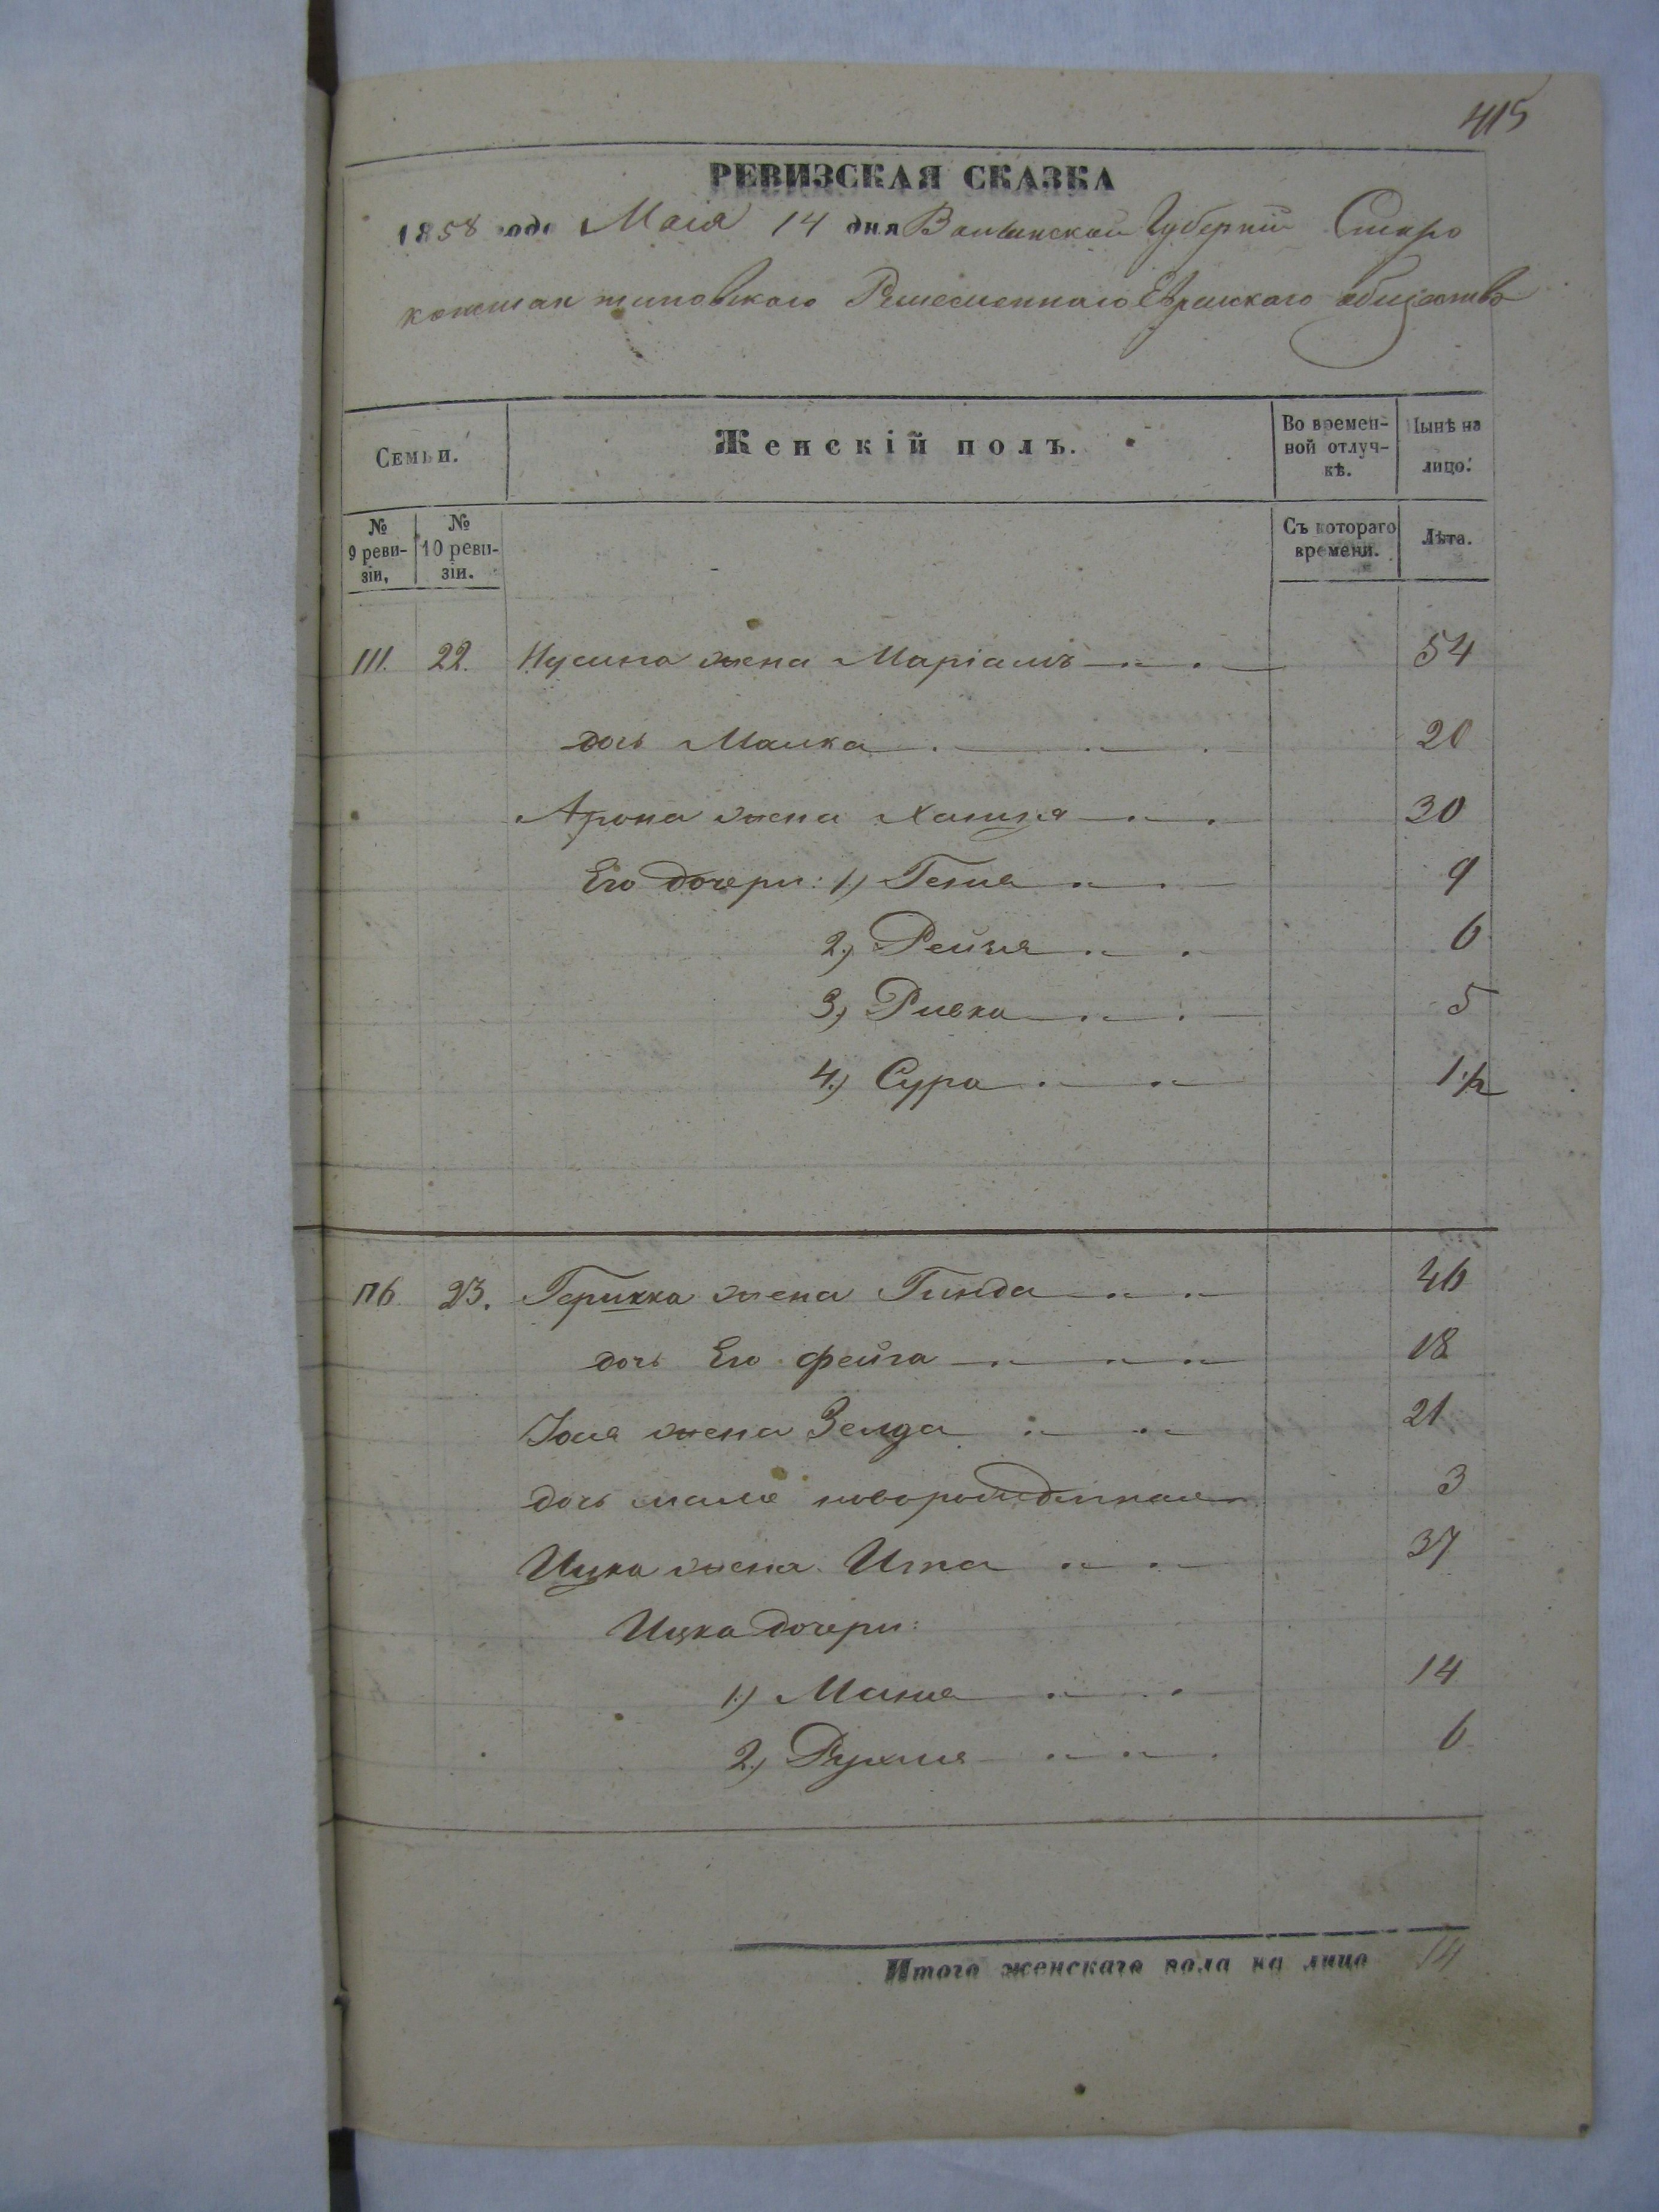 415
РЕВИЗСКАЯ СКАЗКА
1858 года Маія 14 дня Волынской Губерніи Старо
константиновскаго Ремесленнаго Еврейскаго общества
Семьи.
Женскій полъ.
Во времен-
ной отлуч-
кѣ.
Нынѣ на
лицо.
№
9 реви-
зіи,
№
10 реви-
зіи.
Съ котораго
времени.
Лѣта.
111. 22. Нусина жена Маріамъ 54
дочь Малка 20
Арона жена 30
Его дочери: 1) Геня 9
2) Рейзя 6
3) Ривка 5
4) Сура 1 1/2
116. 23. Гершка жена Гинда 46
дочь Его Фейга 18
Іося жена Зелда 21
дочь новорожденная 3
Ицка жена Ита 37
Ицка дочери:
1) Маня 14
2) Рухля 6
Итого женскаго пола на лицо 14